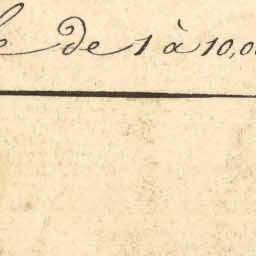 de 1 à 10,0